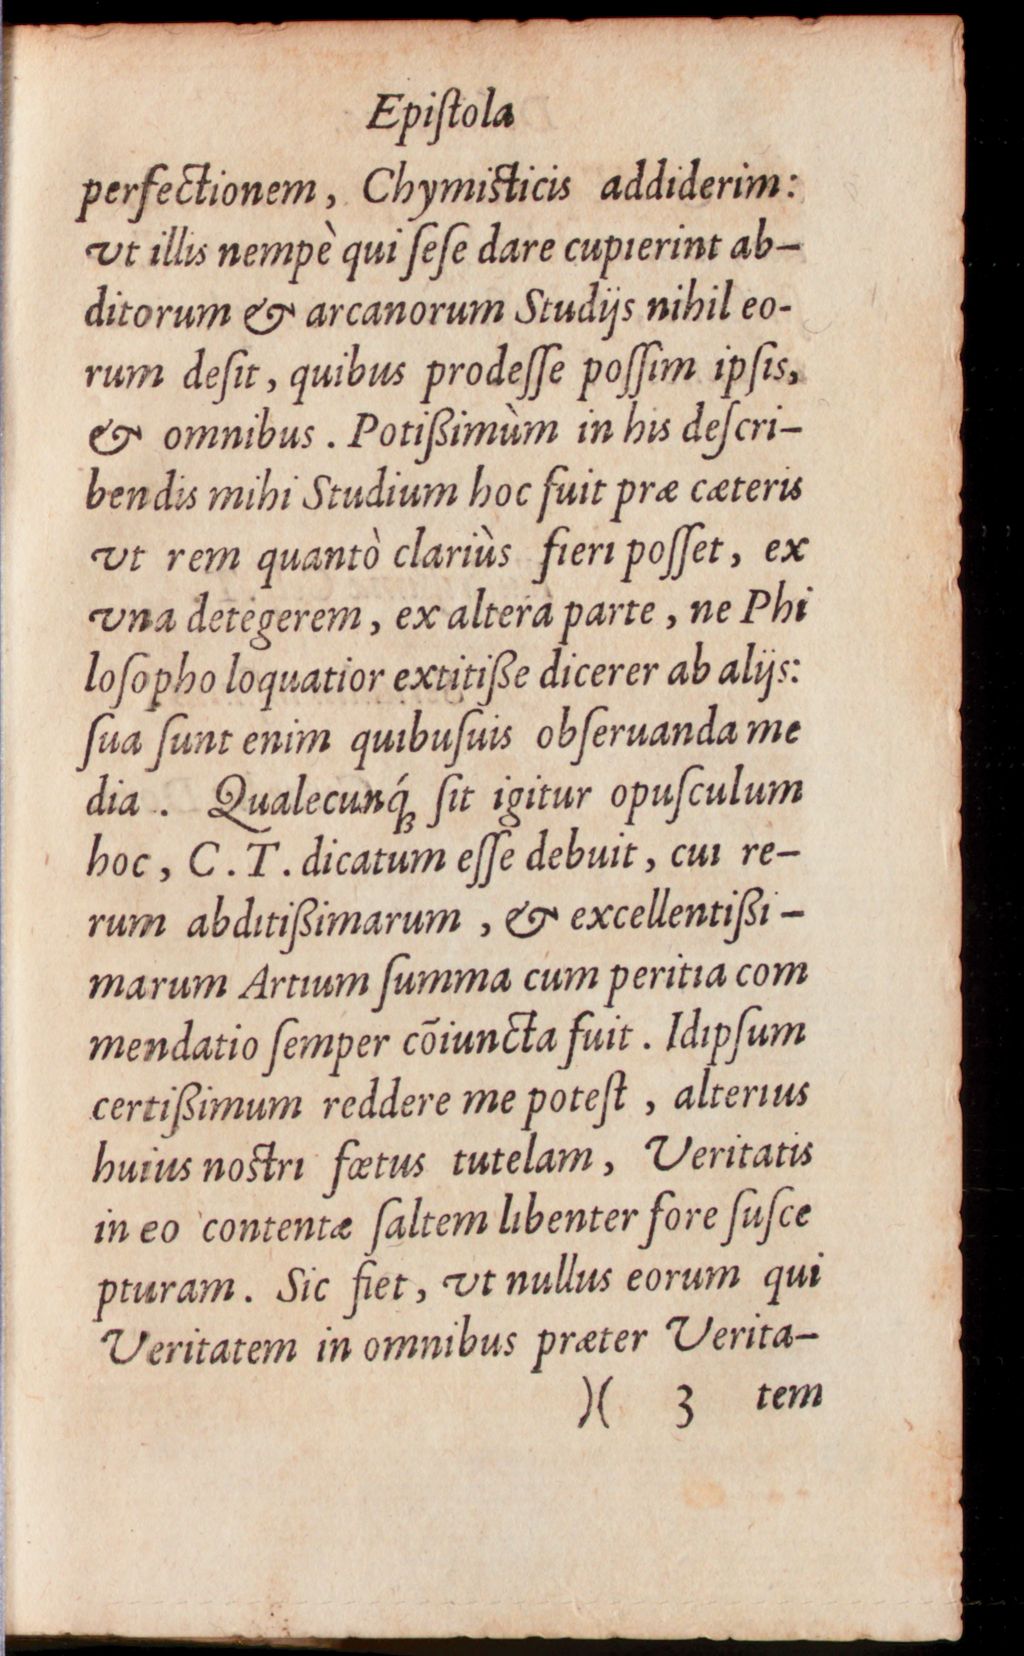 Epiſtola
perfectionem, Chymiſticis addiderim:
vt illis nempè qui ſeſe dare cupierint ab-
ditorum & arcanorum Studijs nihil eo-
rum deſit, quibus prodeſſe poſſim ipſis,
& omnibus. Potißimùm in his deſcri-
bendis mihi Studium hoc fuit præ cæteris
vt rem quantò clariùs fieri poſſet, ex
vna detegerem, ex altera parte, ne Phi
loſopho loquatior extitiße dicerer ab alijs:
ſua ſunt enim quibuſuis obſeruanda me
dia. Qualecunq́ꝫ ſit igitur opuſculum
hoc, C. T. dicatum eſſe debuit, cui re-
rum abditißimarum, & excellentißi-
marum Artium ſumma cum peritia com
mendatio ſemper cõiuncta fuit. Idipſum
certißimum reddere me poteſt, alterius
huius noſtri fœtus tutelam, Veritatis
in eo contentæ ſaltem libenter fore ſuſce
pturam. Sic fiet, vt nullus eorum qui
Veritatem in omnibus præter Verita-
)( 3 tem